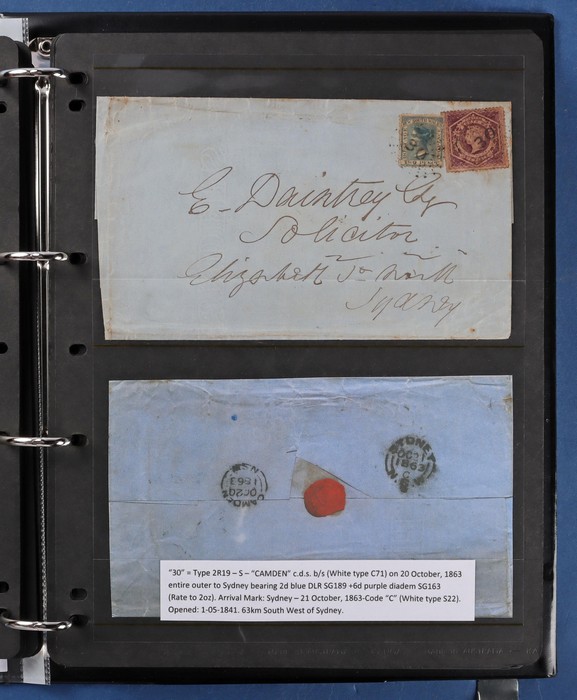 30
E. Daintrey Esq
Solicitor
Elizabeth St. North
Sydney
CAMDEN
OC 20
1863
NSW
SYDNEY
OC 21
1863
C
N.S.W
"30" = Type 2R19 – S – "CAMDEN" c.d.s. b/s (White type C71) on 20 October, 1863
entire outer to Sydney bearing 2d blue DLR SG189 +6d purple diadem SG163
(Rate to 2oz). Arrival Mark: Sydney – 21 October, 1863-Code "C" (White type S22).
Opened: 1-05-1841. 63km South West of Sydney.